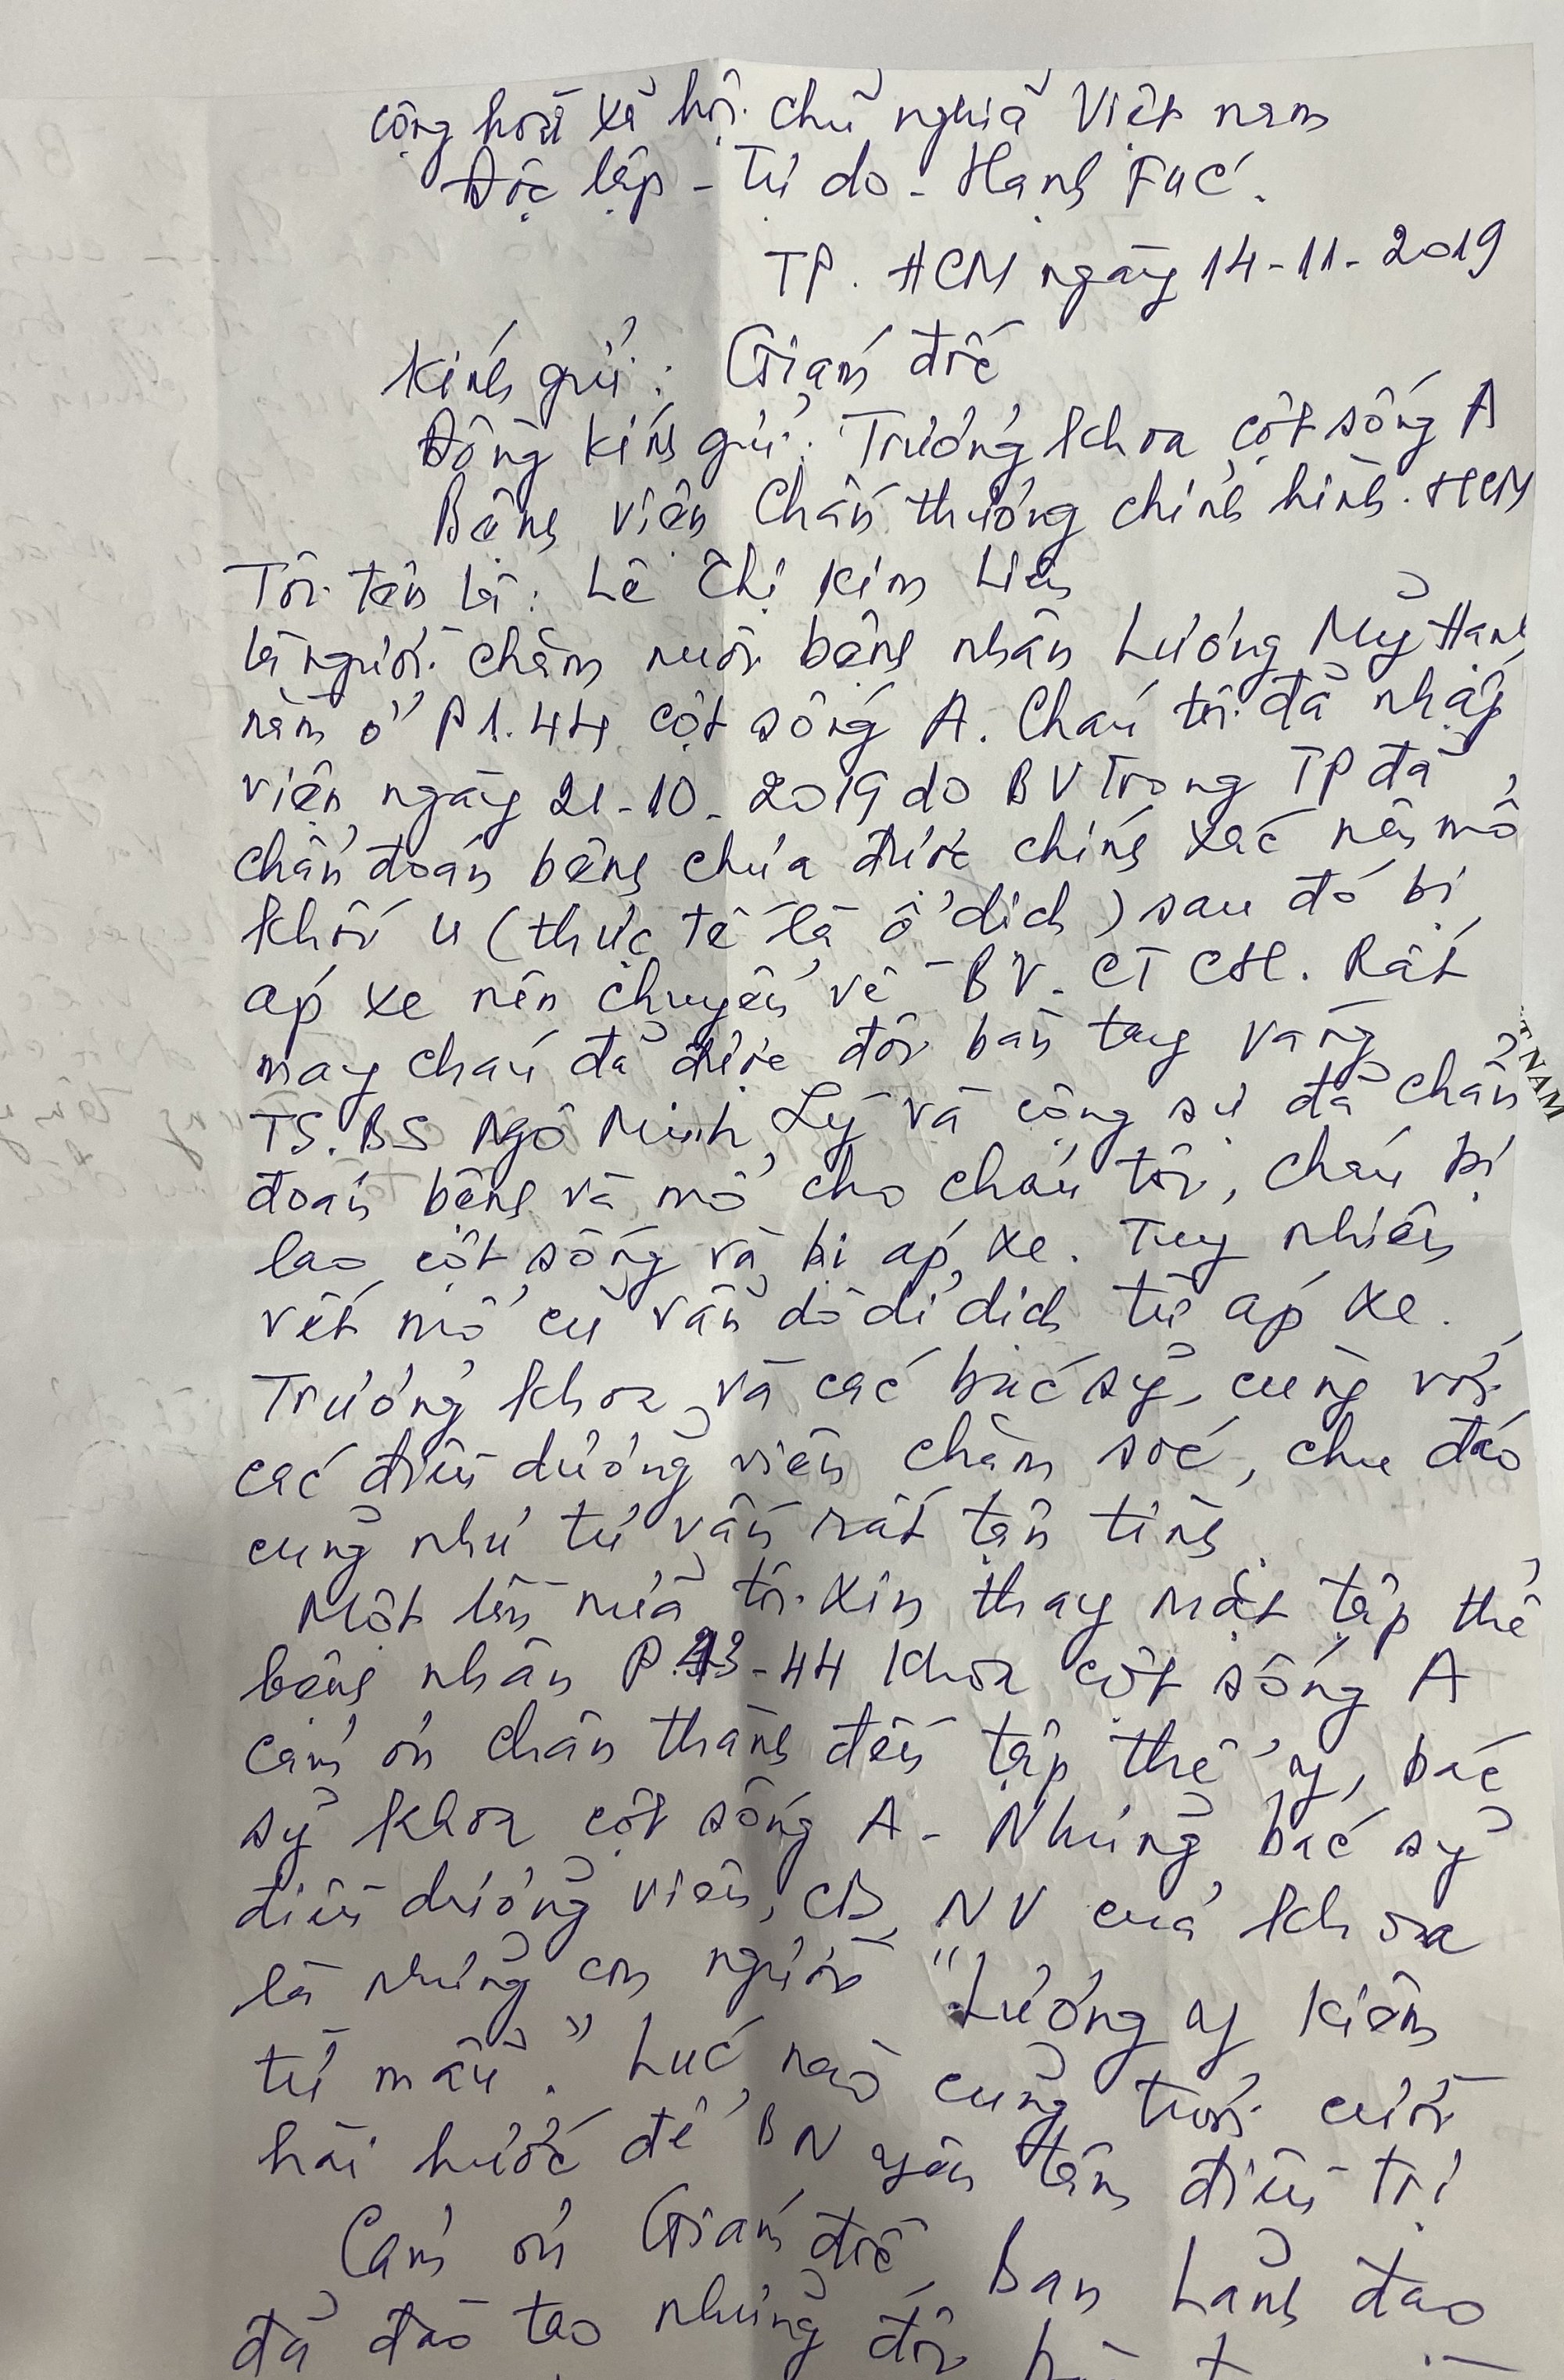 Cộng hoà xã hội chủ nghĩa Việt nam
Độc lập - Tự do - Hạnh Fúc.
TP. HCM ngày 14-11-2019
Kính gửi: Giám đốc
Đồng kính gửi: Trưởng khoa cột sống A
Bệnh viện Chấn thương chỉnh hình. HCM
Tôi tên là: Lê Thị Kim Liên
là người chăm nuôi bệnh nhân Lương Mỹ Hạnh
nằm ở P1.44 cột sống A. Cháu tôi đã nhập
viện ngày 21-10-2019 do BV Trong TP đã
chẩn đoán bệnh chưa được chính xác nên mổ
khối u (thực tế là ổ dịch) sau đó bị
áp xe nên chuyển về BV. CTCH. Rất
may cháu đã được đôi bàn tay vàng
TS.BS Ngô Minh Lý và cộng sự đã chẩn
đoán bệnh và mổ cho cháu tôi, cháu bị
lao cột sống và bị áp xe. Tuy nhiên
vết mổ cũ vẫn dò dỉ dịch từ áp xe.
Trưởng khoa và các bác sỹ, cùng với
các điều dưỡng viên chăm sóc, chu đáo
cũng như tư vấn rất tận tình
Một lần nữa tôi xin thay mặt tập thể
bệnh nhân P.43-44 Khoa cột sống A
cảm ơn chân thành đến tập thể y, bác
sỹ khoa cột sống A - Những bác sỹ
điều dưỡng viên, CB, NV của khoa
là những con người "Lương y kiêm
từ mẫu". Lúc nào cũng tươi cười
hài hước để BN yên tâm điều trị
Cảm ơn Giám đốc, Ban Lãnh đạo
đã đào tạo những đội
T NAM